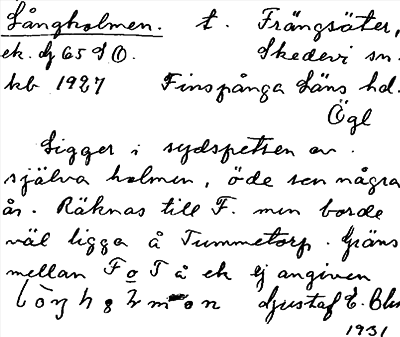 Långholmen. t. Frängsäter,
ek. bl 65 SO. Skedevi sn.
kb 1927 Finspånga Läns hd.
Ögl
Ligger i sydspetsen av
själva holmen, öde sen några
år. Räknas till F. men borde
väl ligga å Tummetorp. Gräns
mellan F o T å ek ej angiven
Gustaf E. Bl
1931